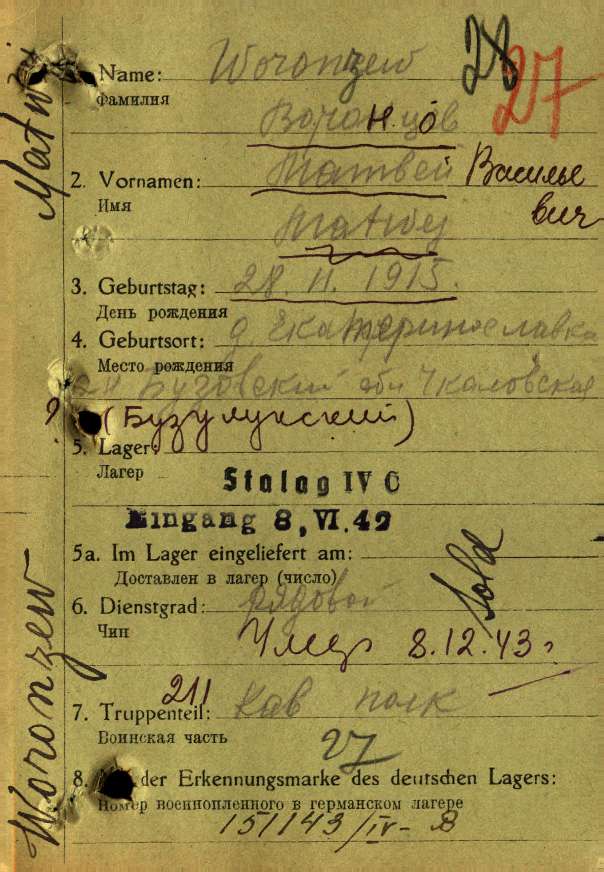 28
27
Name: Woronzew
Фамилия
Воронцов
н. о
2. Vornamen: Матвей Василье
Имя
вич
Matwej
3. Geburtstag: 28. 11. 1915.
День рождения
4. Geburtsort: д Екатеринославка
Место рождения
Бузовский обл Чкаловская
? (Бузулукский)
5. Lager:
Лагер
Stalag IV C
Eingang 8. VI. 42
5a. Im Lager eingeliefert am:
Доставлен в лагер (число)
Sold
6. Dienstgrad: рядовой
Чин
Умер 8.12.43г
211
7. Truppenteil: Кав полк
Воинская часть
27
8. der Erkennungsmarke des deutschen Lagers:
Номер военнопленного в германском лагере
151143/IV-B
Woronzew
Matwej